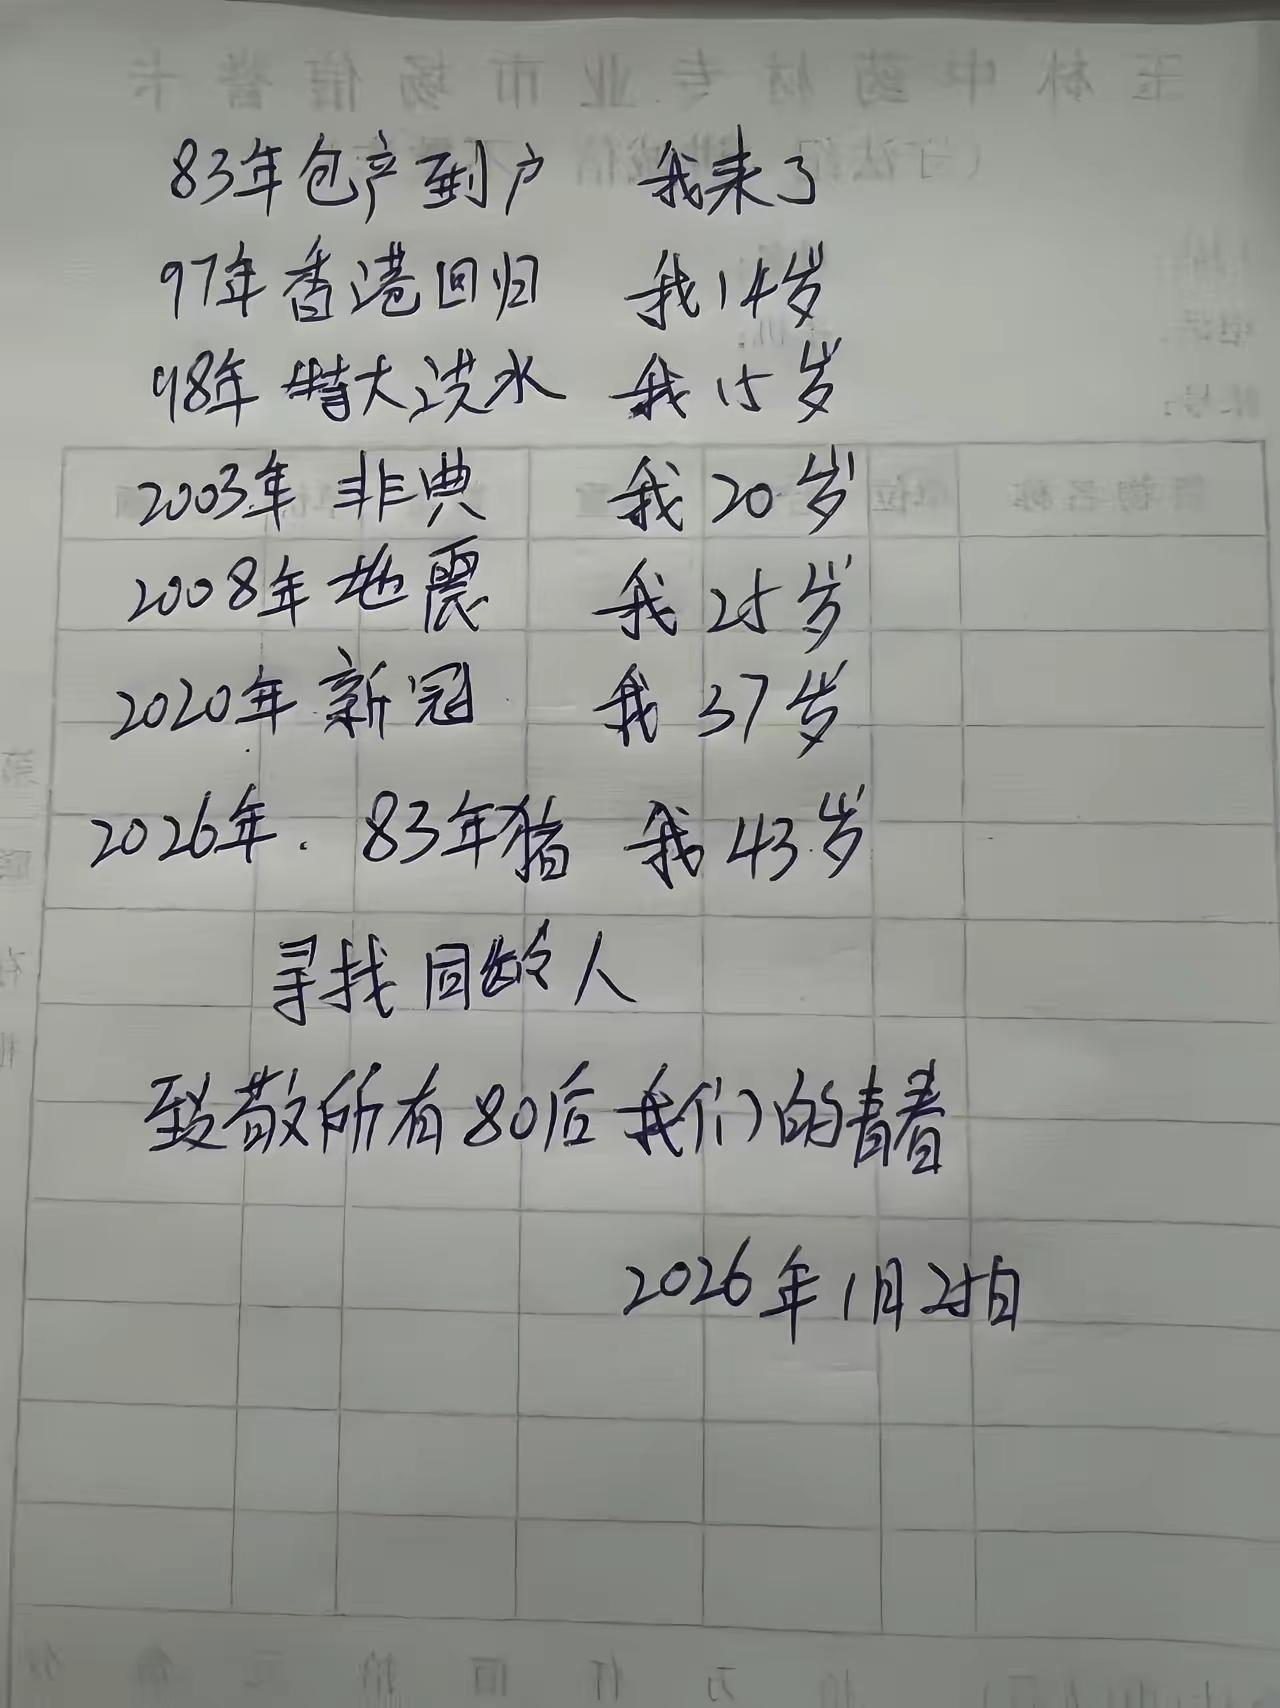 玉林中药材专业市场信誉卡
83年包产到户 我来了
97年香港回归 我14岁
98年特大洪水 我15岁
2003年非典 我20岁
2008年地震 我25岁
2020年新冠 我37岁
2026年.83年猪 我43岁
寻找同龄人
致敬所有80后我们的青春
2026年1月25日